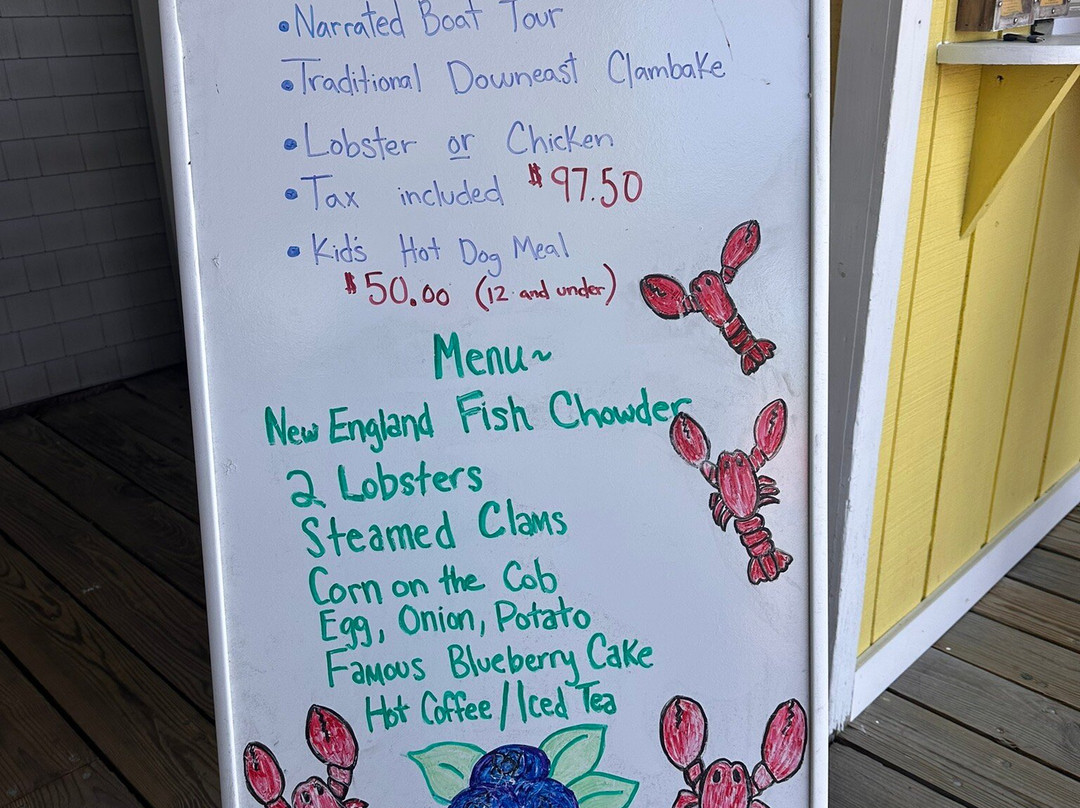 • Narrated Boat Tour
• Traditional Downeast Clambake
• Lobster or Chicken
• Tax included $97.50
• Kid's Hot Dog Meal
$50.00 (12 and under)
Menu~
New England Fish Chowder
2 Lobsters
Steamed Clams
Corn on the Cob
Egg, Onion, Potato
Famous Blueberry Cake
Hot Coffee/Iced Tea